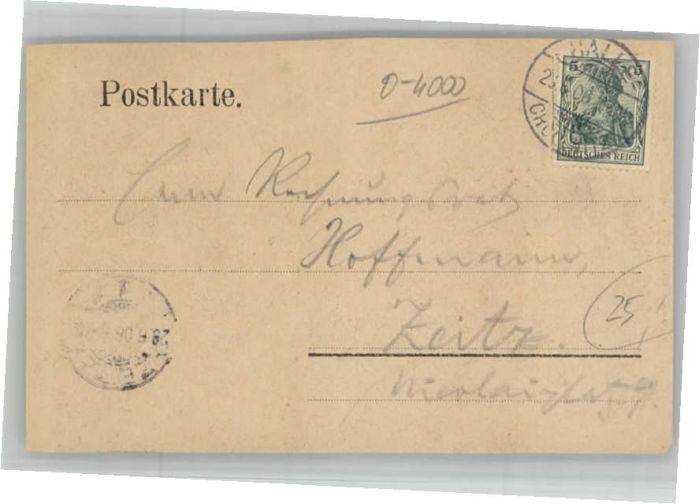 Postkarte.
0-4000
HALL
5 5
DEUTSCHES REICH
Herrn Rechnungsrat
Hoffmann,
Zeitz.
25
28.6.06